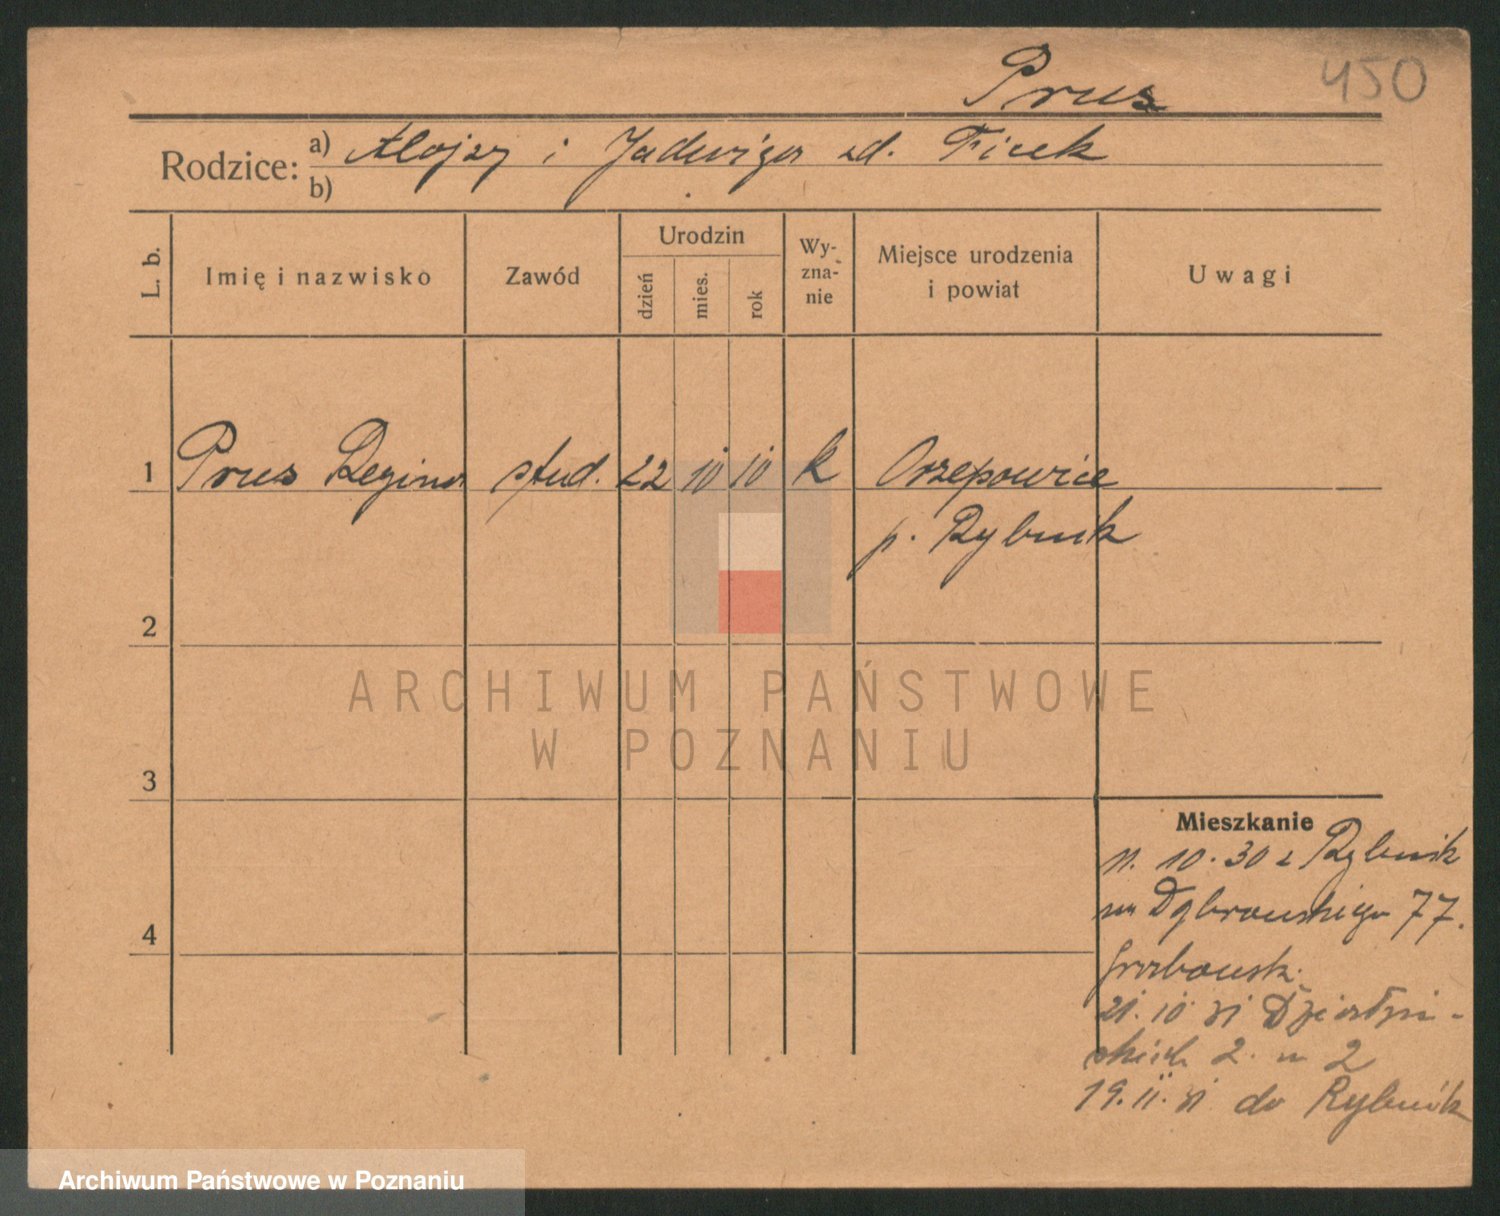 Prus
450
Rodzice: a) Alojzy i Jadwiga zd. Ficek
b)
L. b.
Imię i nazwisko
Zawód
Urodzin
dzień
mies.
rok
Wy-
zna-
nie
Miejsce urodzenia
i powiat
Uwagi
1 Prus Regina stud. 22 10 10 k Orzepowice
p. Rybnik
2
3
4
Mieszkanie
11. 10. 30 z Rybnik
na Dąbrowskiego 77.
Grabowsk.
21. 10 31 Działyń-
skich 2. m 2
19. 11. 31 do Rybnik
ARCHIWUM PAŃSTWOWE
W POZNANIU
Archiwum Państwowe w Poznaniu